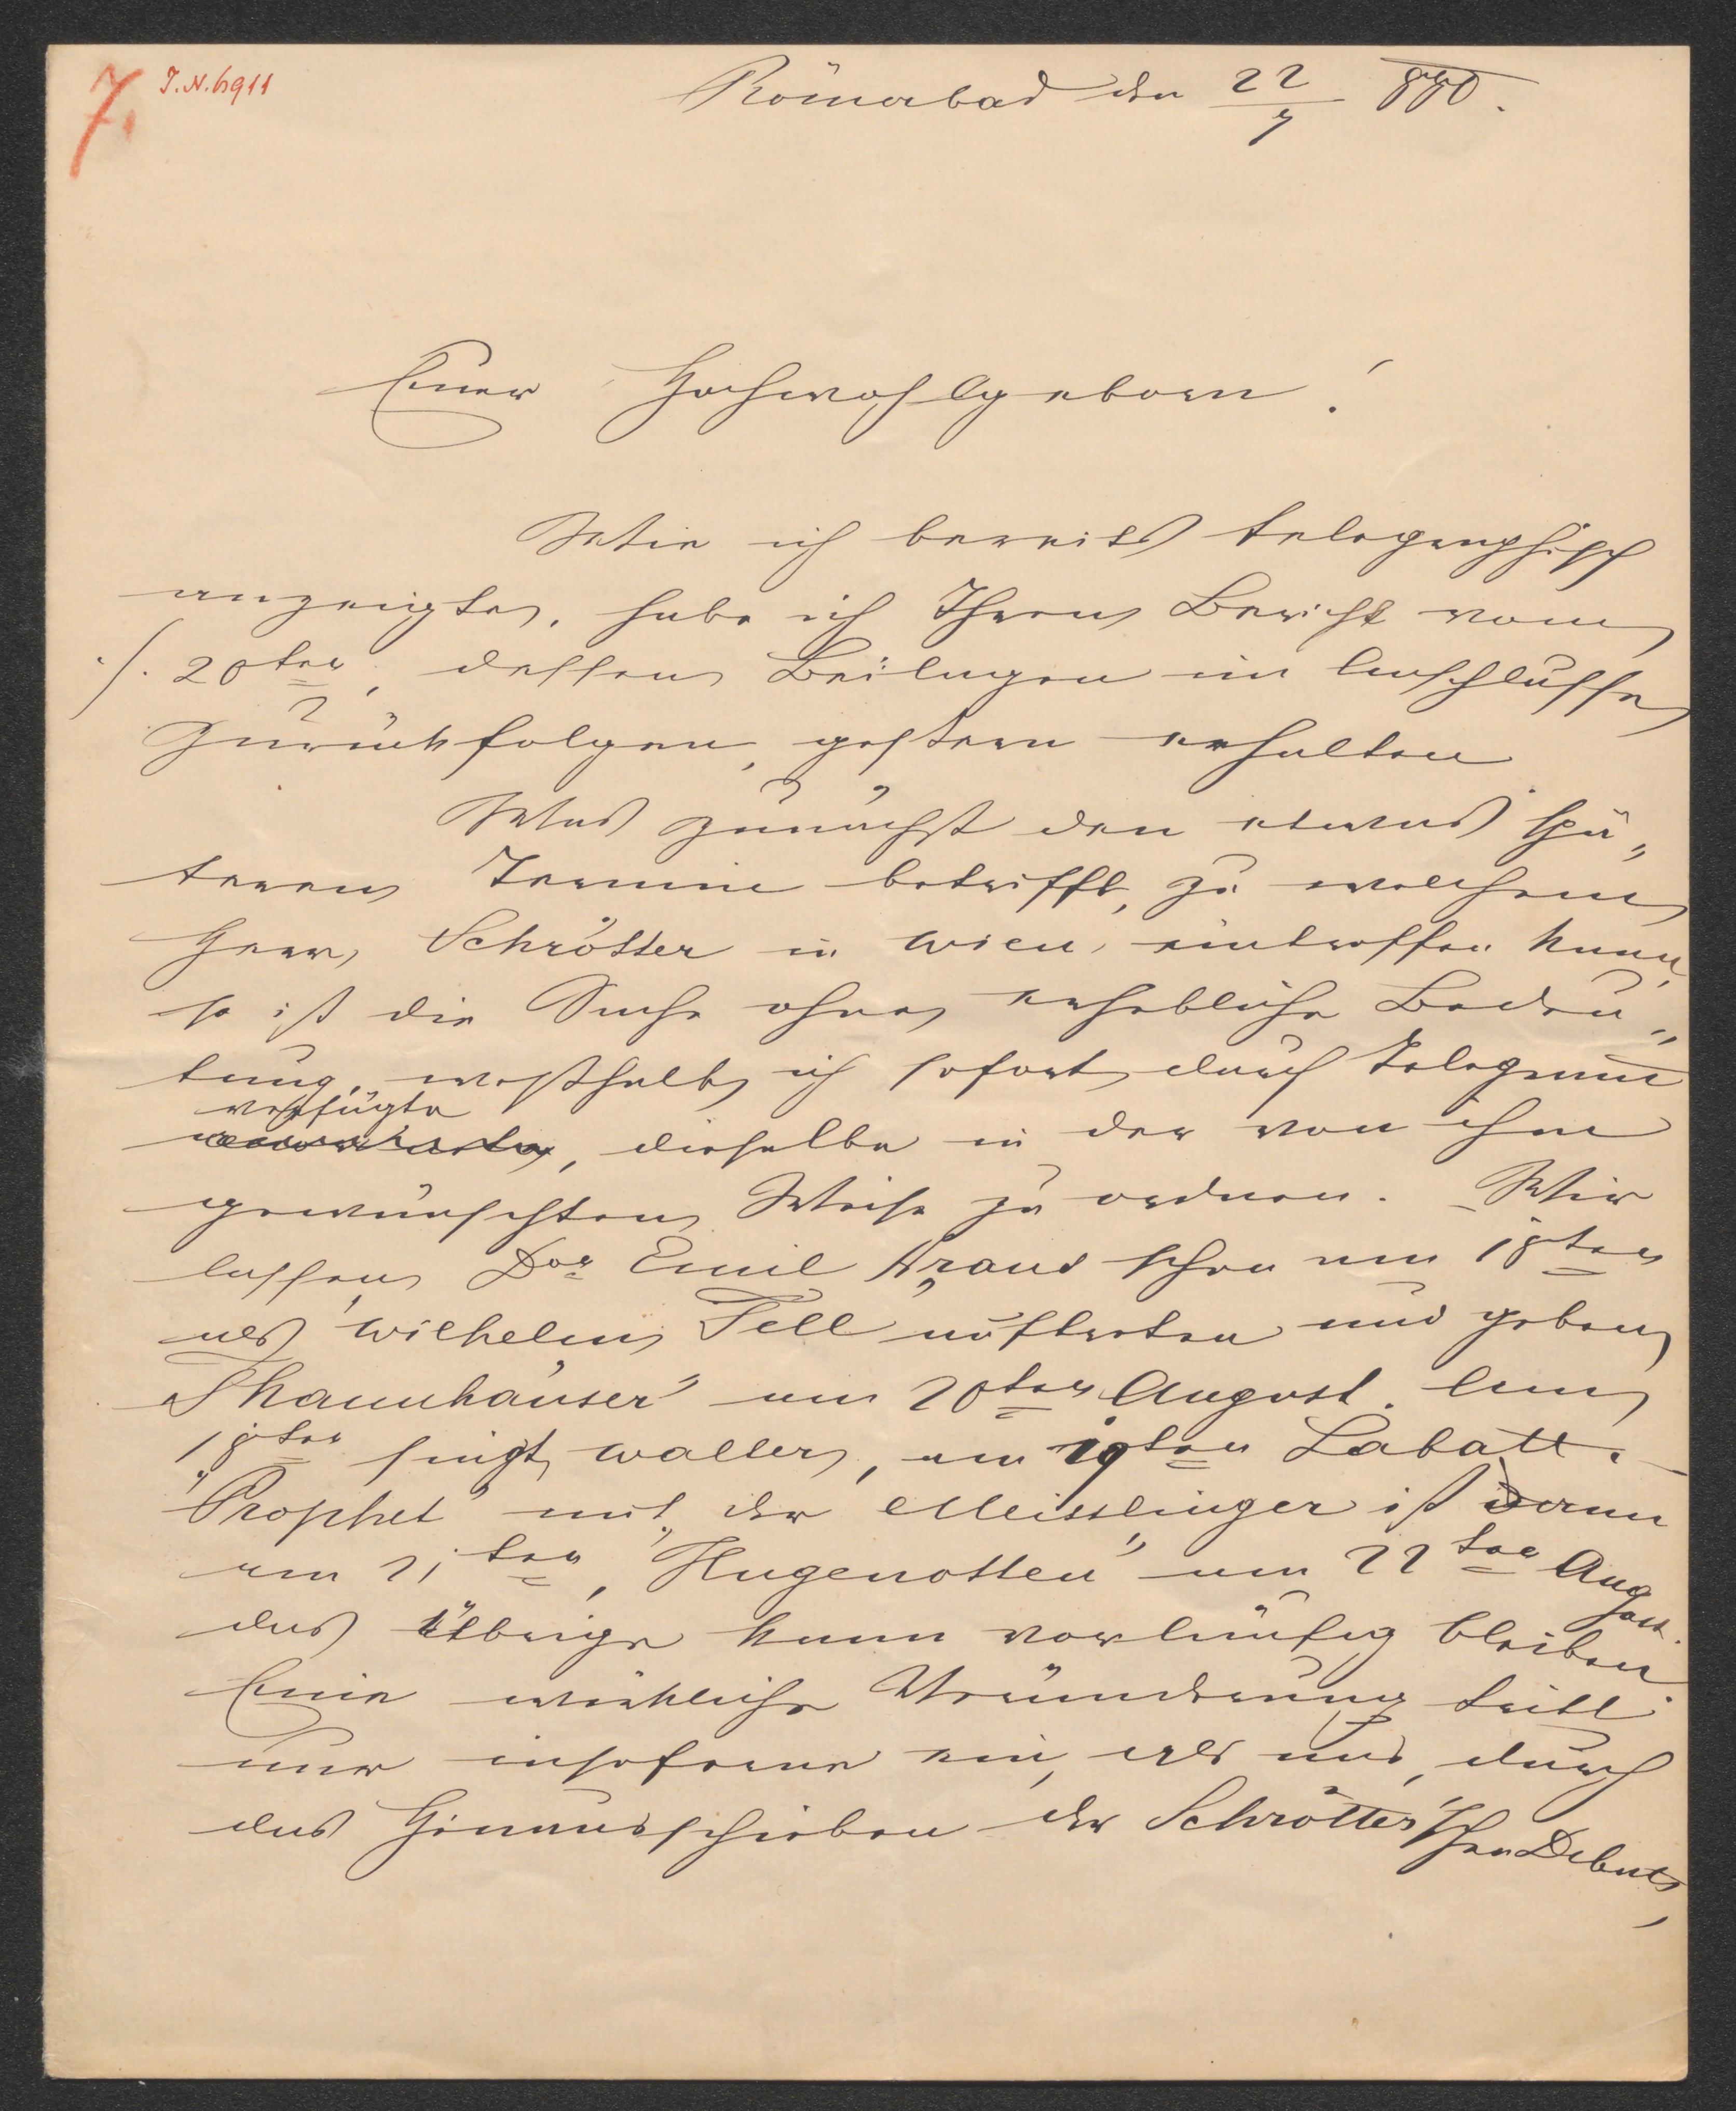 7. J.N. 6911
Römerbad den 22/7 880.
Euer Hochwohlgeborn!
Wie ich bereits telegraphisch
anzeigte, habe ich Ihren Bericht vom
./. 20ten, dessen Beilagen im Anschlusse
zurückfolgen, gestern erhalten
Was zunächst den etwas spä„
teren Termin betrifft, zu welchem
Herr Schrötter in Wien eintreffen kann,
so ist die Sache ohne erhebliche Bedeu„
tung, weßhalb ich sofort durch Telegramm
verfügte
, dieselbe in der von ihm
gewünschten Weise zu ordnen. – Wir
lassen Dor Emil Kraus schon am 18ten
als Wilhelm Tell auftreten und geben
„Thannhäuser“ am 20ten August. Am
18ten singt Waller, am 19ten Labatt. –
„Prophet“ mit der Meisslinger ist dann
am 21ten, „Hugenotten“ am 22ten August.
das Übrige kann vorläufig bleiben.
Eine wirkliche Veränderung tritt
nur insoferne ein, als uns, durch
das Hinausschieben der Schrötter'schen Debuts,